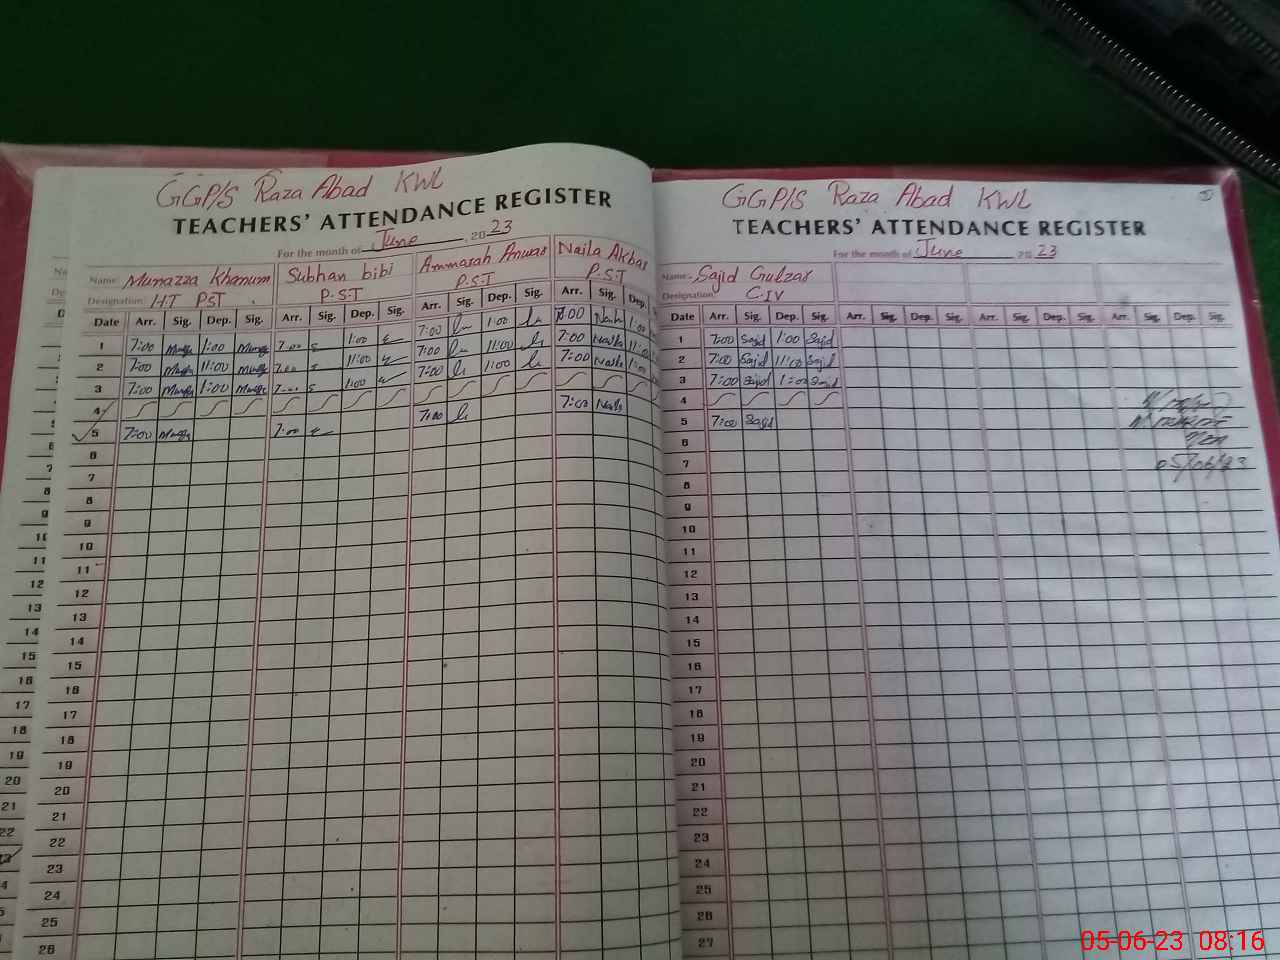 GGP/S Raza Abad KWL
TEACHERS' ATTENDANCE REGISTER
For the month of June, 2023
Name: Munazza Khanum Subhan bibi Ammarah Anwar Naila Akbar
Designation: H.T PST P.S.T P.S.T P.S.T
Date Arr. Sig. Dep. Sig. Arr. Sig. Dep. Sig. Arr. Sig. Dep. Sig. Arr. Sig. Dep.
1 7:00 1:00 7:00 1:00 7:00 1:00 7:00 1:00
2 7:00 11:00 7:00 11:00 7:00 11:00 7:00 11:00
3 7:00 1:00 7:00 1:00 7:00 1:00 7:00 1:00
4
5 7:00 7:00 7:00 7:00
6
7
8
9
10
11
12
13
14
15
16
17
18
19
20
21
22
23
24
25
26
GGP/S Raza Abad KWL
TEACHERS' ATTENDANCE REGISTER
For the month of June 2023
Name: Sajid Gulzar
Designation: C-IV
Date Arr. Sig. Dep. Sig. Arr. Sig. Dep. Sig. Arr. Sig. Dep. Sig. Arr. Sig. Dep. Sig.
1 7:00 Sajid 1:00 Sajid
2 7:00 Sajid 11:00 Sajid
3 7:00 Sajid 1:00 Sajid
4
5 7:00 Sajid
6
7
05/06/23
8
9
10
11
12
13
14
15
16
17
18
19
20
21
22
23
24
25
26
27
05-06-23 08:16